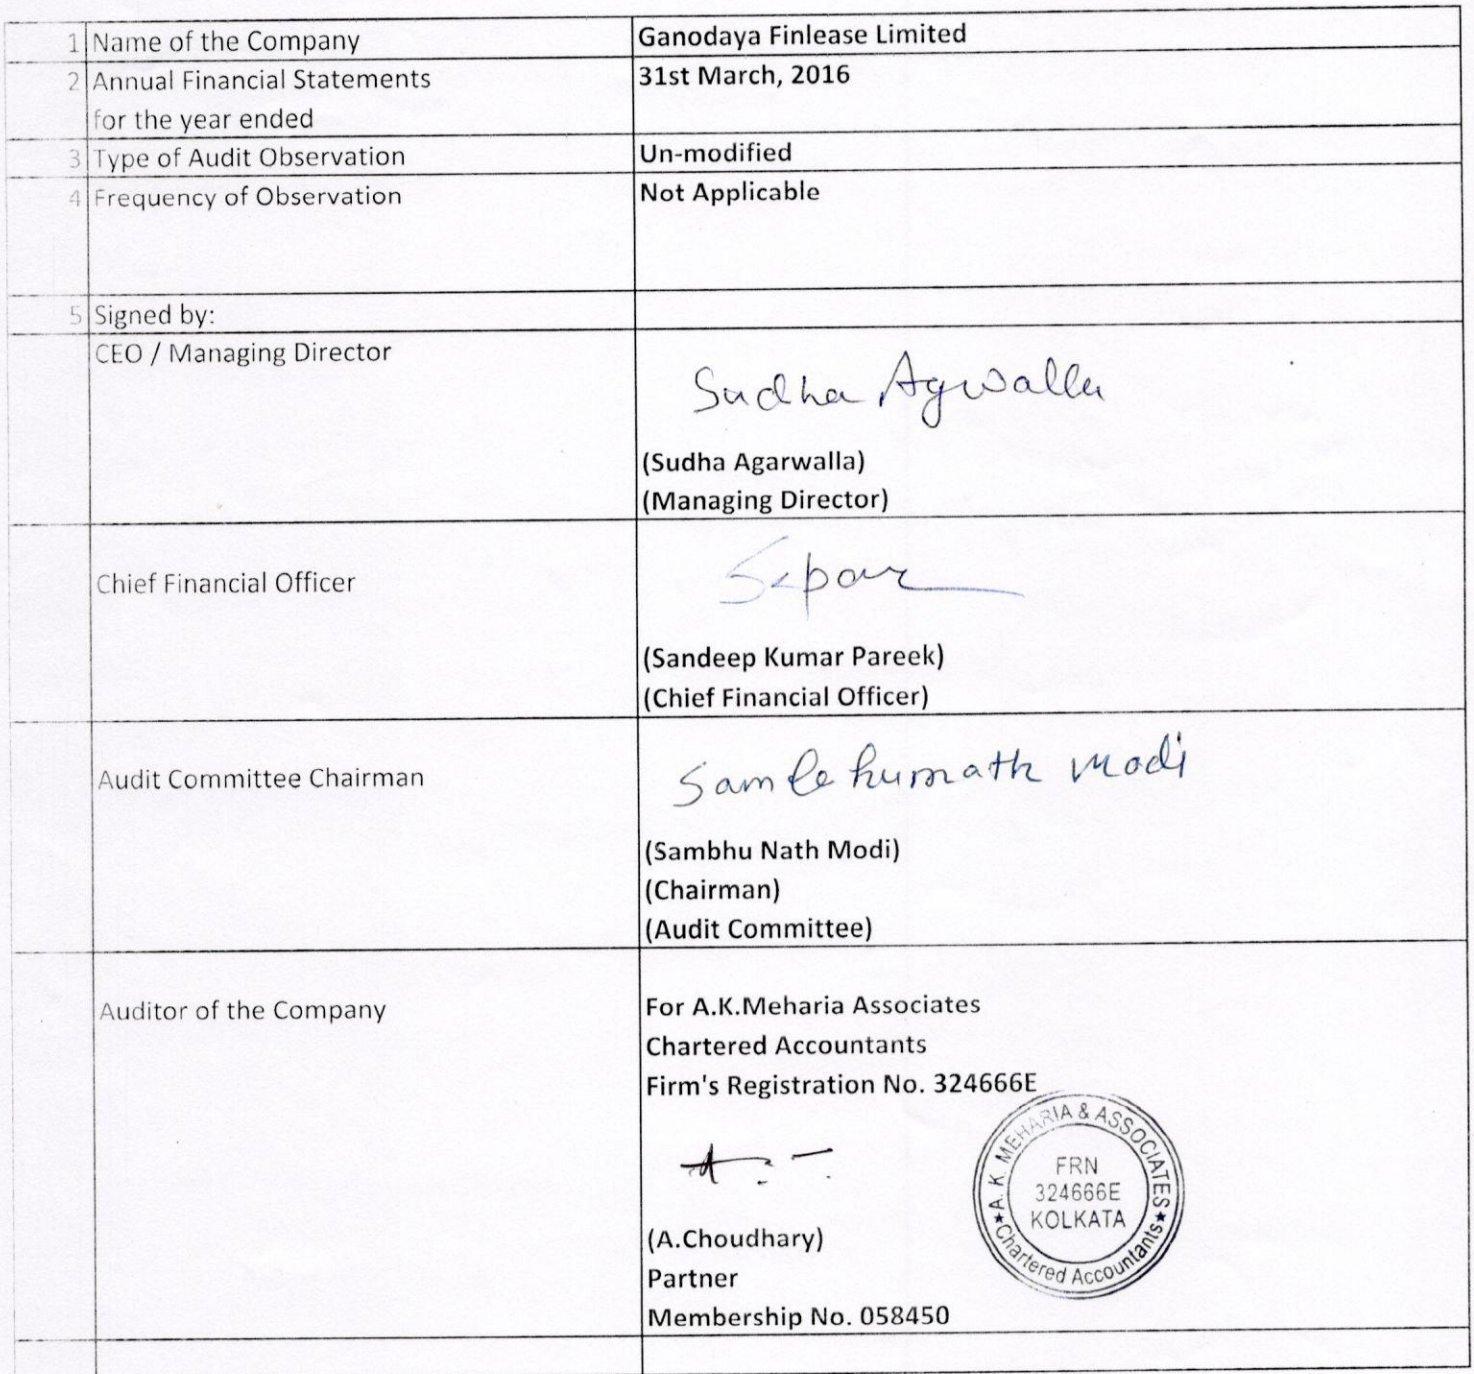 1 Name of the Company Ganodaya Finlease Limited
2 Annual Financial Statements 31st March, 2016
for the year ended
3 Type of Audit Observation Un-modified
4 Frequency of Observation Not Applicable
5 Signed by:
CEO / Managing Director
Sudha Agwalla
(Sudha Agarwalla)
(Managing Director)
Chief Financial Officer
(Sandeep Kumar Pareek)
(Chief Financial Officer)
Audit Committee Chairman
Modi
(Sambhu Nath Modi)
(Chairman)
(Audit Committee)
Auditor of the Company For A.K.Meharia Associates
Chartered Accountants
Firm's Registration No. 324666E
A. K. MEHARIA & ASSOCIATES
FRN
324666E
KOLKATA
★ Chartered Accountants ★
(A.Choudhary)
Partner
Membership No. 058450